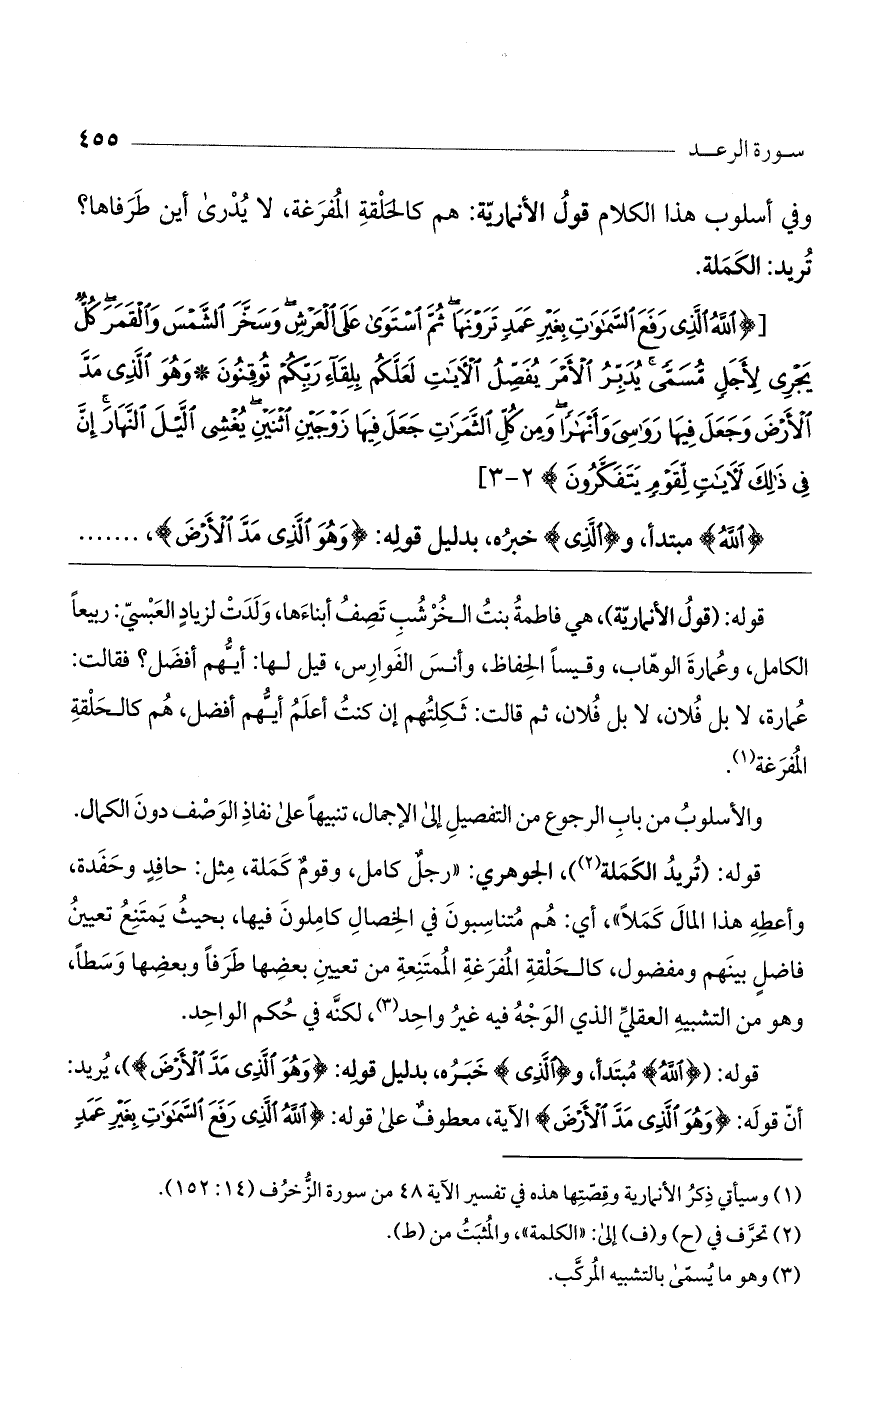 سورة الرعد ٤٥٥
وفي أسلوب هذا الكلام قولُ الأنماريّة: هم كالحَلْقةِ المُفرَغة، لا يُدْرىٰ أين طرَفاها؟
تُريد: الكَمَلة.
[﴿ٱللَّهُ ٱلَّذِى رَفَعَ ٱلسَّمَٰوَٰتِ بِغَيْرِ عَمَدٍ تَرَوْنَهَا ۖ ثُمَّ ٱسْتَوَىٰ عَلَى ٱلْعَرْشِ ۖ وَسَخَّرَ ٱلشَّمْسَ وَٱلْقَمَرَ ۖ كُلٌّ
يَجْرِى لِأَجَلٍ مُّسَمًّى ۚ يُدَبِّرُ ٱلْأَمْرَ يُفَصِّلُ ٱلْآيَٰتِ لَعَلَّكُم بِلِقَآءِ رَبِّكُمْ تُوقِنُونَ * وَهُوَ ٱلَّذِى مَدَّ
ٱلْأَرْضَ وَجَعَلَ فِيهَا رَوَٰسِىَ وَأَنْهَٰرًا ۖ وَمِن كُلِّ ٱلثَّمَرَٰتِ جَعَلَ فِيهَا زَوْجَيْنِ ٱثْنَيْنِ ۖ يُغْشِى ٱلَّيْلَ ٱلنَّهَارَ ۚ إِنَّ
فِى ذَٰلِكَ لَآيَٰتٍ لِّقَوْمٍ يَتَفَكَّرُونَ﴾ ٢-٣]
﴿ٱللَّهُ﴾ مبتدأ، و﴿ٱلَّذِى﴾ خبرُه، بدليل قولِه: ﴿وَهُوَ ٱلَّذِى مَدَّ ٱلْأَرْضَ﴾، .......
قوله: (قولُ الأنماريّة)، هي فاطمةُ بنتُ الخُرْشُبِ تَصِفُ أبناءَها، وَلَدَتْ لزيادٍ العَبْسيّ: ربيعاً
الكامل، وعُمارةَ الوهّاب، وقيساً الحِفاظ، وأنسَ الفَوارِس، قيل لها: أيُّهم أفضَل؟ فقالت:
عُمارة، لا بل فُلان، لا بل فُلان، ثم قالت: ثَكِلتُهم إن كنتُ أعلَمُ أيُّهم أفضل، هُم كالحَلقةِ
المُفرَغة(١).
والأسلوبُ من بابِ الرجوع من التفصيلِ إلىٰ الإجمال، تنبيهاً علىٰ نفاذِ الوَصْف دونَ الكمال.
قوله: (تُريدُ الكَمَلة(٢))، الجوهري: «رجلٌ كامل، وقومٌ كَمَلة، مِثل: حافِدٍ وحَفَدة،
وأعطِهِ هذا المالَ كَمَلاً»، أي: هُم مُتناسِبونَ في الخِصال كامِلونَ فيها، بحيثُ يَمتَنِعُ تعيينُ
فاضلٍ بينَهم ومفضول، كالحَلْقةِ المُفرَغةِ المُمتَنِعة من تعيينِ بعضِها طَرَفاً وبعضِها وَسَطاً،
وهو من التشبيهِ العقليِّ الذي الوَجْهُ فيه غيرُ واحِد(٣)، لكنَّه في حُكم الواحِد.
قوله: (﴿ٱللَّهُ﴾ مُبتَدأ، و﴿ٱلَّذِى﴾ خَبَرُه، بدليل قولِه: ﴿وَهُوَ ٱلَّذِى مَدَّ ٱلْأَرْضَ﴾)، يُريد:
أنّ قولَه: ﴿وَهُوَ ٱلَّذِى مَدَّ ٱلْأَرْضَ﴾ الآية، معطوفٌ علىٰ قوله: ﴿ٱللَّهُ ٱلَّذِى رَفَعَ ٱلسَّمَٰوَٰتِ بِغَيْرِ عَمَدٍ
(١) وسيأتي ذِكرُ الأنمارية وقِصّتِها هذه في تفسير الآية ٤٨ من سورة الزُّخرُف (١٤: ١٥٢).
(٢) تحرَّف في (ح) و(ف) إلىٰ: «الكلمة»، والمُثبَتُ من (ط).
(٣) وهو ما يُسمّىٰ بالتشبيه المُركَّب.